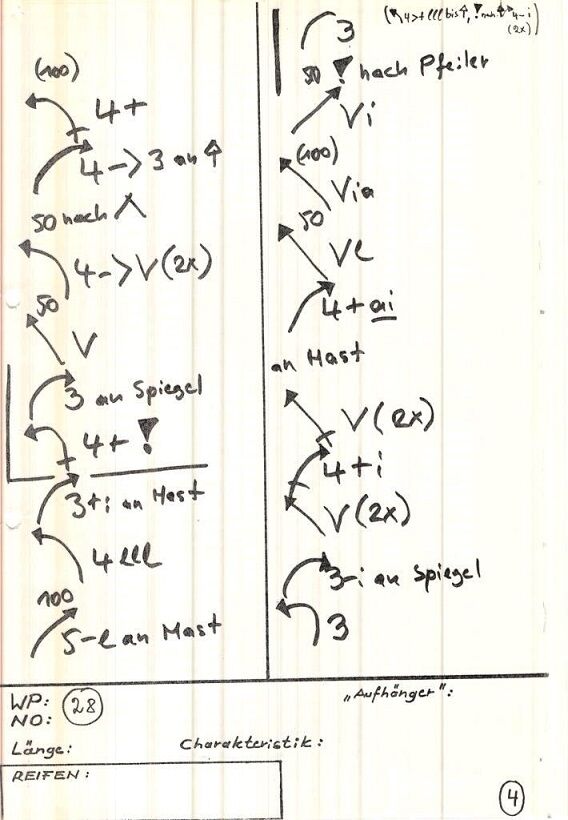 (100)
4+
4 -> 3 an ⇧
50 nach
4 -> V (2x)
50
V
3 an Spiegel
4+ !
3+i an Mast
4 lll
100
5-l an Mast
bis
(2x)
3
50 ! nach Pfeiler
Vi
(100)
Via
50
Vl
4+ ai
an Mast
V (2x)
4+i
V (2x)
3-i an Spiegel
3
WP: 28
NO:
„Aufhänger":
Länge:
Charakteristik:
REIFEN:
4